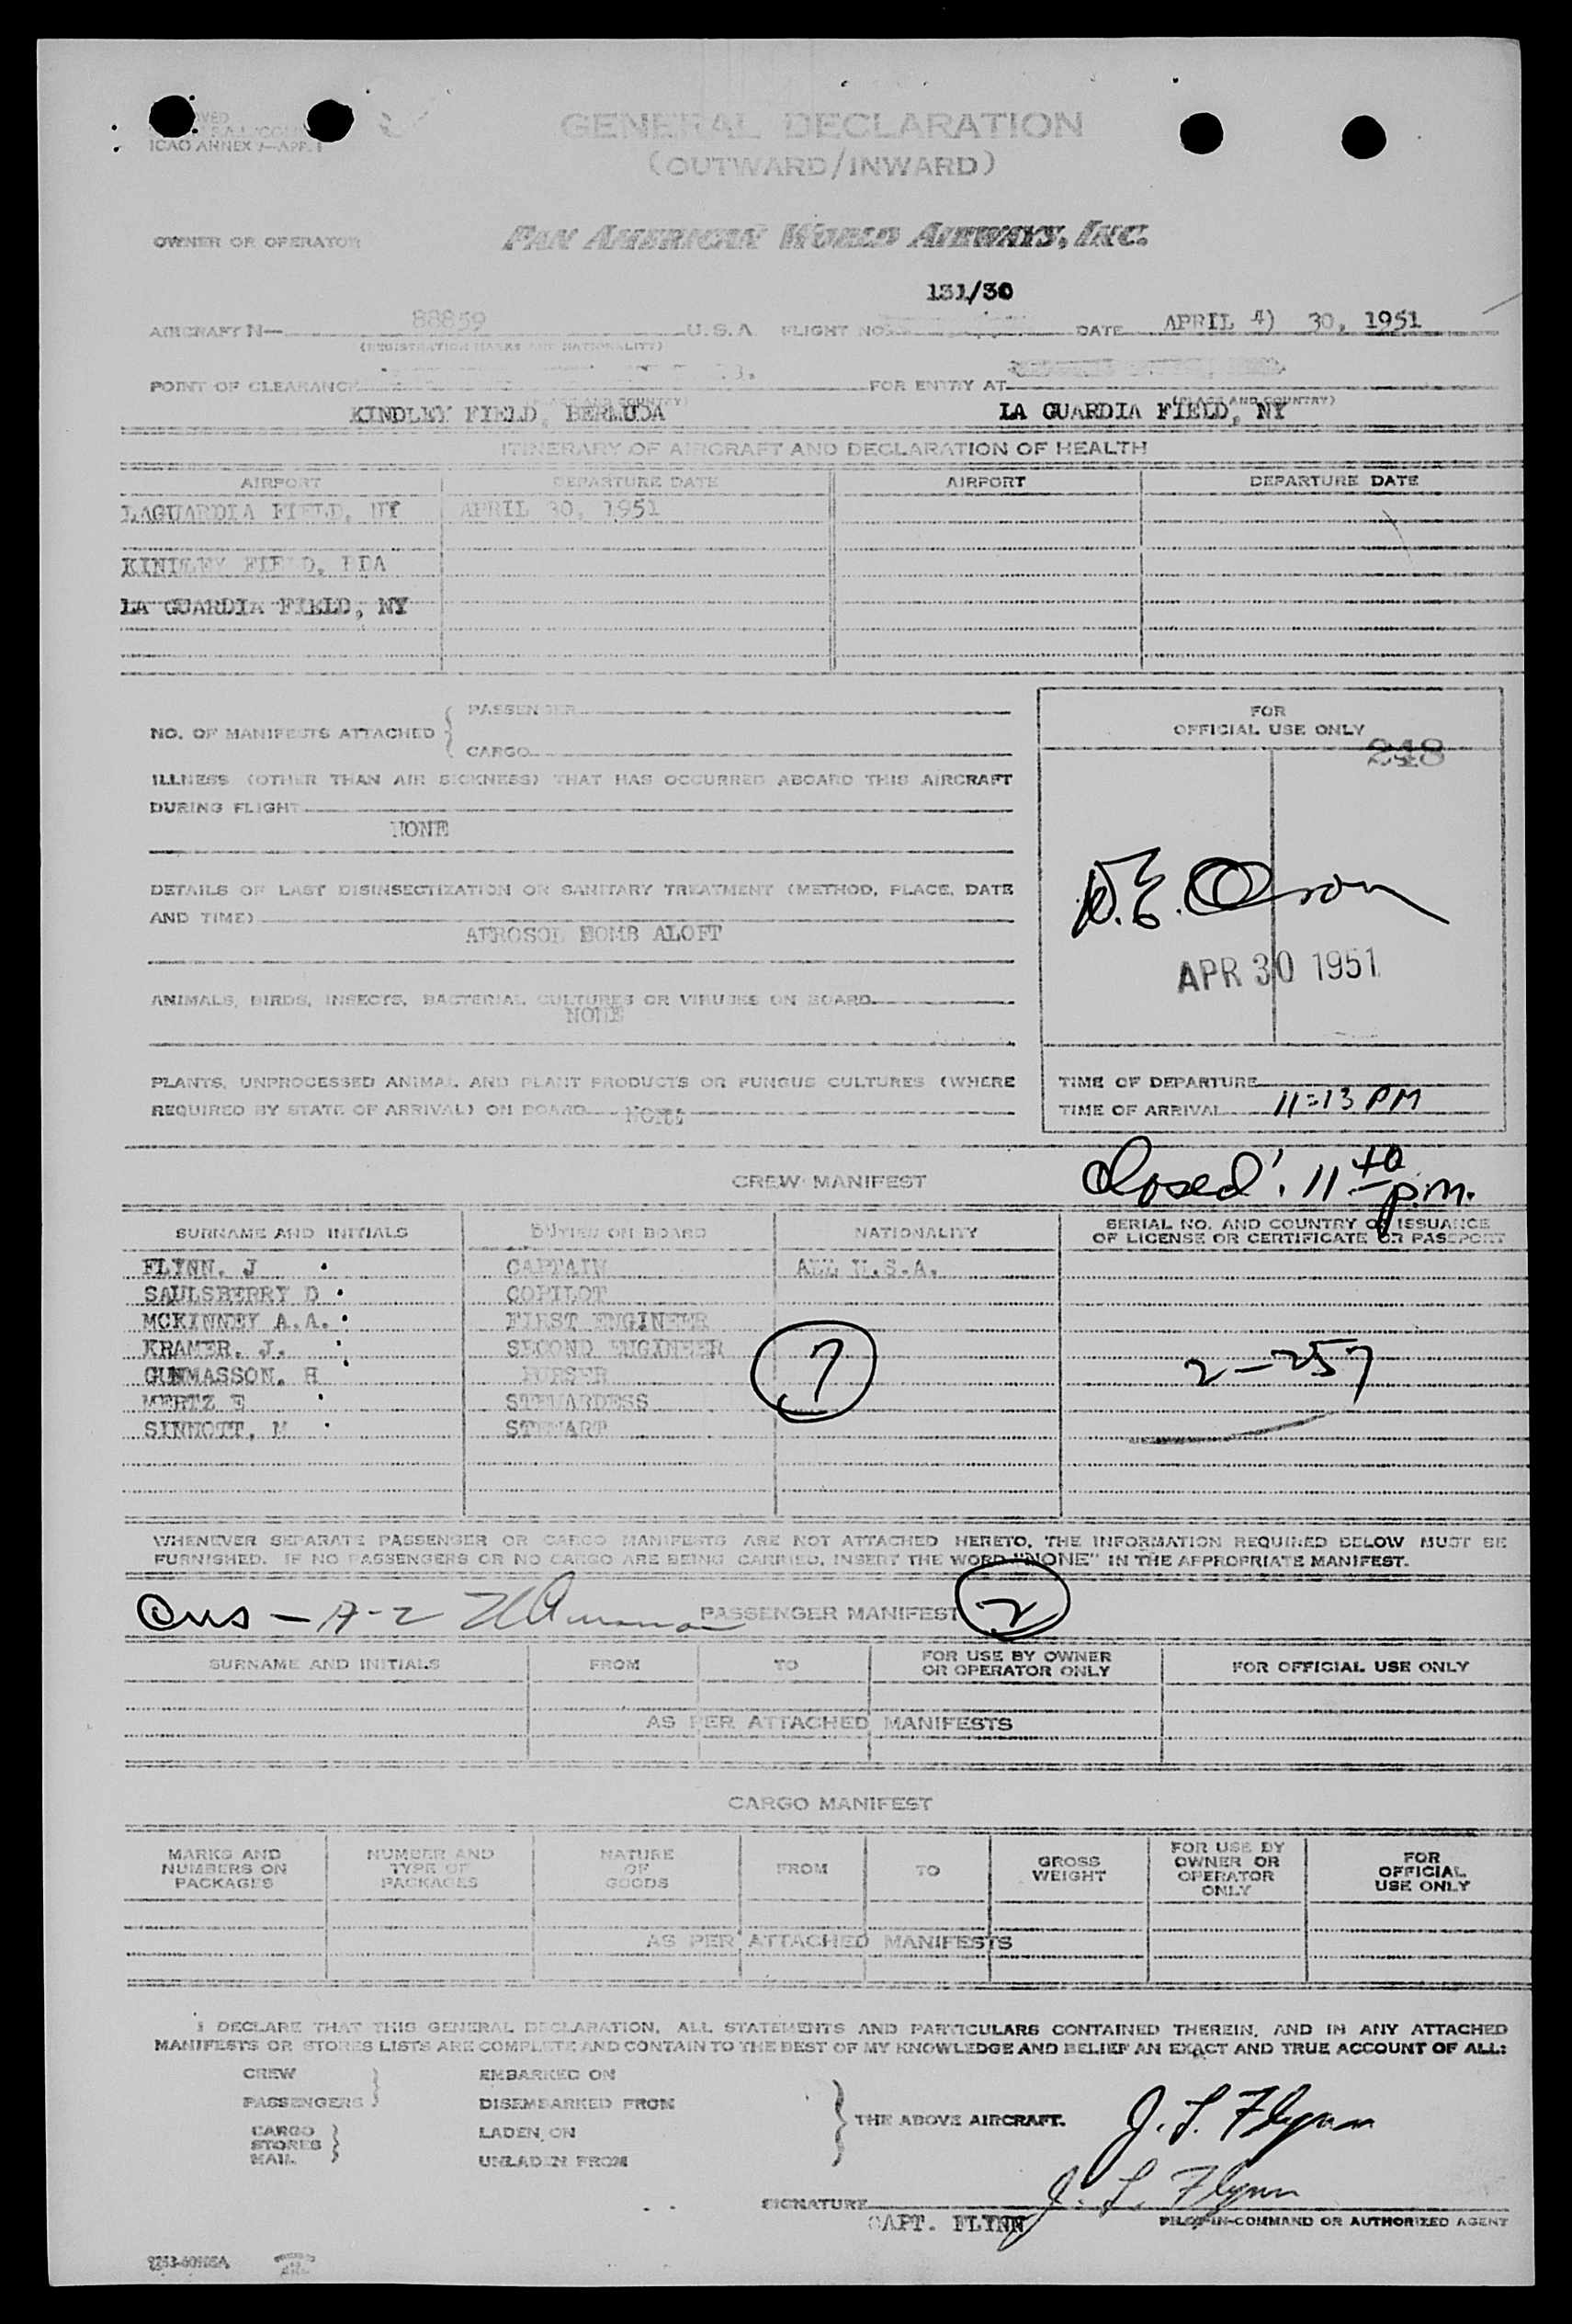 ICAO ANNEX 9—APP. 1
GENERAL DECLARATION
(OUTWARD/INWARD)
OWNER OR OPERATOR PAN AMERICAN WORLD AIRWAYS, INC.
131/30
AIRCRAFT N— 88859 U.S.A. FLIGHT NO. DATE APRIL 4) 30, 1951
(REGISTRATION MARKS AND NATIONALITY)
POINT OF CLEARANCE FOR ENTRY AT
(PLACE AND COUNTRY) (PLACE AND COUNTRY)
KINDLEY FIELD, BERMUDA LA GUARDIA FIELD, NY
ITINERARY OF AIRCRAFT AND DECLARATION OF HEALTH
AIRPORT DEPARTURE DATE AIRPORT DEPARTURE DATE
LAGUARDIA FIELD, NY APRIL 30, 1951
KINDLEY FIELD, BDA
LA GUARDIA FIELD, NY
NO. OF MANIFESTS ATTACHED { PASSENGER
CARGO
FOR
OFFICIAL USE ONLY
248
ILLNESS (OTHER THAN AIR SICKNESS) THAT HAS OCCURRED ABOARD THIS AIRCRAFT
DURING FLIGHT
NONE
DETAILS OF LAST DISINSECTIZATION OR SANITARY TREATMENT (METHOD, PLACE, DATE
AND TIME)
AEROSOL BOMB ALOFT
D.E. Olson
APR 30 1951
ANIMALS, BIRDS, INSECTS, BACTERIAL CULTURES OR VIRUSES ON BOARD
NONE
PLANTS, UNPROCESSED ANIMAL AND PLANT PRODUCTS OR FUNGUS CULTURES (WHERE
REQUIRED BY STATE OF ARRIVAL) ON BOARD NONE
TIME OF DEPARTURE
TIME OF ARRIVAL 11=13 PM
Closed: 11 40 p.m.
CREW MANIFEST
SURNAME AND INITIALS DUTIES ON BOARD NATIONALITY SERIAL NO. AND COUNTRY OF ISSUANCE
OF LICENSE OR CERTIFICATE OR PASSPORT
FLYNN, J CAPTAIN ALL U.S.A.
SAULSBERRY D COPILOT
MCKINNEY A.A. FIRST ENGINEER
KRAMER, J. SECOND ENGINEER 7 2-257
GUNMASSON, H PURSER
MERTZ E STEWARDESS
SINNOTT, M STEWART
WHENEVER SEPARATE PASSENGER OR CARGO MANIFESTS ARE NOT ATTACHED HERETO, THE INFORMATION REQUIRED BELOW MUST BE
FURNISHED. IF NO PASSENGERS OR NO CARGO ARE BEING CARRIED, INSERT THE WORD "NONE" IN THE APPROPRIATE MANIFEST.
A-2 PASSENGER MANIFEST 2
SURNAME AND INITIALS FROM TO FOR USE BY OWNER
OR OPERATOR ONLY FOR OFFICIAL USE ONLY
AS PER ATTACHED MANIFESTS
CARGO MANIFEST
MARKS AND
NUMBERS ON
PACKAGES NUMBER AND
TYPE OF
PACKAGES NATURE
OF
GOODS FROM TO GROSS
WEIGHT FOR USE BY
OWNER OR
OPERATOR
ONLY FOR
OFFICIAL
USE ONLY
AS PER ATTACHED MANIFESTS
I DECLARE THAT THIS GENERAL DECLARATION, ALL STATEMENTS AND PARTICULARS CONTAINED THEREIN, AND IN ANY ATTACHED
MANIFESTS OR STORES LISTS ARE COMPLETE AND CONTAIN TO THE BEST OF MY KNOWLEDGE AND BELIEF AN EXACT AND TRUE ACCOUNT OF ALL:
CREW EMBARKED ON
PASSENGERS DISEMBARKED FROM
CARGO LADEN ON
STORES
MAIL UNLADEN FROM
THE ABOVE AIRCRAFT.
J. L. Flynn
J. L. Flynn
SIGNATURE
CAPT. FLYNN PILOT-IN-COMMAND OR AUTHORIZED AGENT